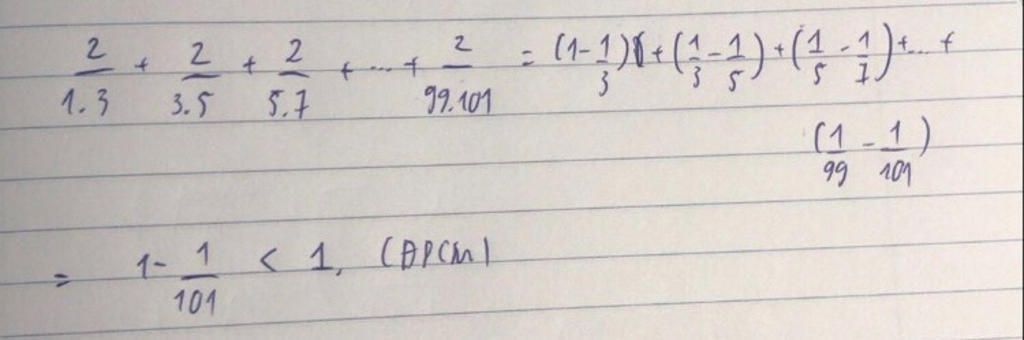 2/1.3 + 2/3.5 + 2/5.7 + ... + 2/99.101 = (1-1/3) + (1/3-1/5) + (1/5-1/7) + ... +
(1/99 - 1/101)
= 1 - 1/101 < 1. (ĐPCM)